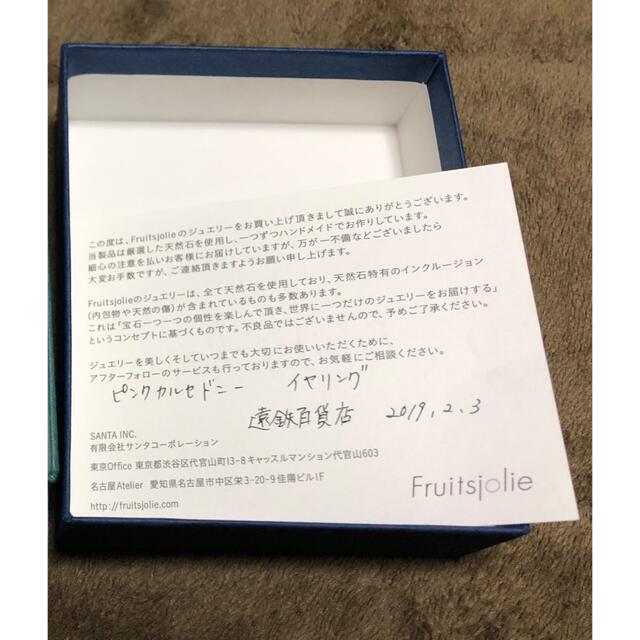 この度は、Fruitsjolieのジュエリーをお買い上げ頂きまして誠にありがとうございます。
当製品は厳選した天然石を使用し、一つずつハンドメイドでお作りしています。
細心の注意を払いお客様にお届けしていますが、万が一不備などございましたら
大変お手数ですが、ご連絡頂きますようお願い申し上げます。
Fruitsjolieのジュエリーは、全て天然石を使用しており、天然石特有のインクルージョン
(内包物や天然の傷)が含まれているものも多数あります。
これは「宝石一つ一つの個性を楽しんで頂き、世界に一つだけのジュエリーをお届けする」
というコンセプトに基づくものです。不良品ではございませんので、予めご了承ください。
ジュエリーを美しくそしていつまでも大切にお使いいただくために、
アフターフォローのサービスも行っておりますので、お気軽にご相談ください。
ピンクカルセドニー イヤリング
遠鉄百貨店 2019.2.3
SANTA INC.
有限会社サンタコーポレーション
東京Office 東京都渋谷区代官山町13-8キャッスルマンション代官山603
名古屋Atelier 愛知県名古屋市中区栄3-20-9佳陽ビル1F
http://fruitsjolie.com
Fruitsjolie